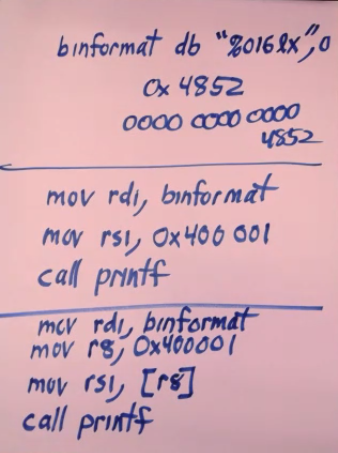 binformat db "%016lx",0
0x 4852
0000 0000 0000
4852
mov rdi, binformat
mov rsi, 0x400 001
call printf
mov rdi, binformat
mov r8, 0x400001
mov rsi, [r8]
call printf